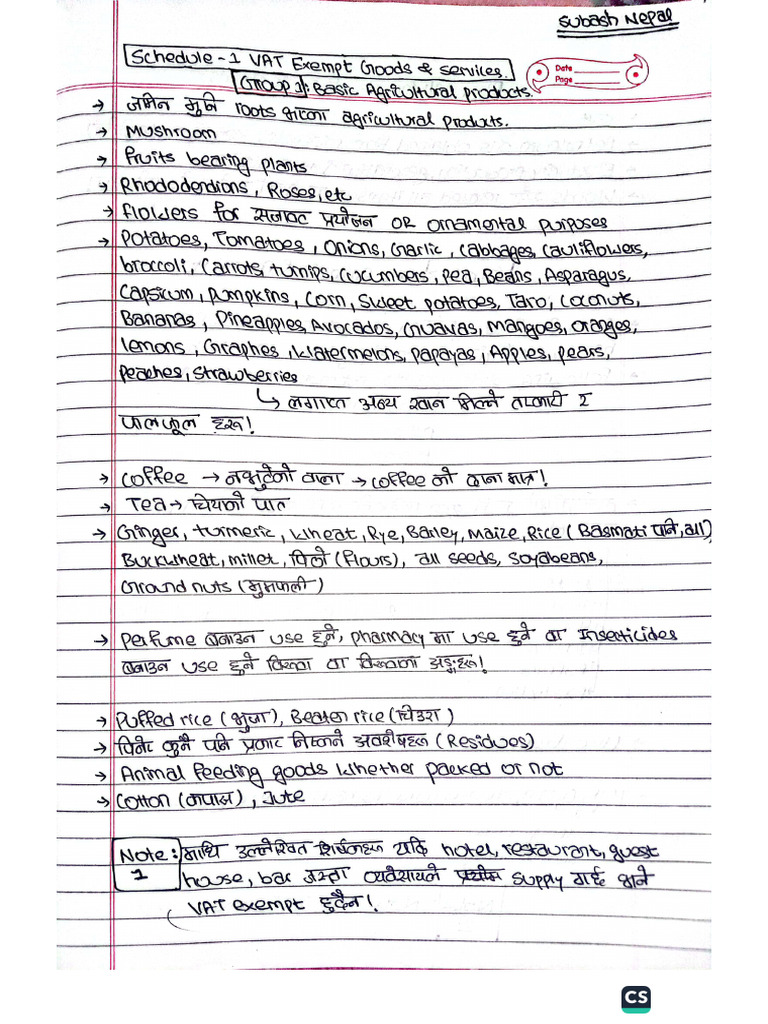 Subash Nepal
Schedule-1 VAT Exempt Goods & services.
Date
Page
Group 1: Basic Agricultural products.
→ जमिन मुनि roots भएका agricultural products.
→ Mushroom
→ fruits bearing plants
→ Rhododendrons, Roses, etc
→ flowers for सजावट प्रयोजन OR ornamental purposes
→ Potatoes, Tomatoes, Onions, Garlic, Cabbages, Cauliflowers,
broccoli, Carrots, turnips, Cucumbers, Pea, Beans, Asparagus,
Capsicum, Pumpkins, Corn, Sweet potatoes, Taro, Coconuts,
Bananas, Pineapples, Avocados, Guavas, Mangoes, Oranges,
lemons, Graphes, Watermelons, papayas, Apples, pears,
Peaches, strawberries
↳ लगाएत अन्य खान मिल्ने तरकारी र
फलफूल हरू!
→ Coffee → नभुटेको वाला → coffee को दाना मात्र!
→ Tea → चियाको पात
→ Ginger, turmeric, Wheat, Rye, Barley, Maize, Rice (Basmati पनि, all)
Buckwheat, millet, पिठो (Flours), all seeds, soyabeans,
Ground nuts (मुमफली)
→ Perfume बनाउन use हुने, pharmacy मा use हुने वा Insecticides
बनाउन use हुने विरुवा वा विरुवाका अङ्गहरू!
→ Puffed rice (भुजा), Beaten rice (चिउरा)
→ पिनेट कुनै पनि प्रकार निस्कने अवशेषहरू (Residues)
→ Animal feeding goods whether packed or not
→ Cotton (कपास), Jute
Note: माथि उल्लेखित शिर्षकहरू यदि hotel, restaurant, guest
1 house, bar जस्ता व्यवसायले supply गर्छ भने
VAT exempt हुदैन!
CS